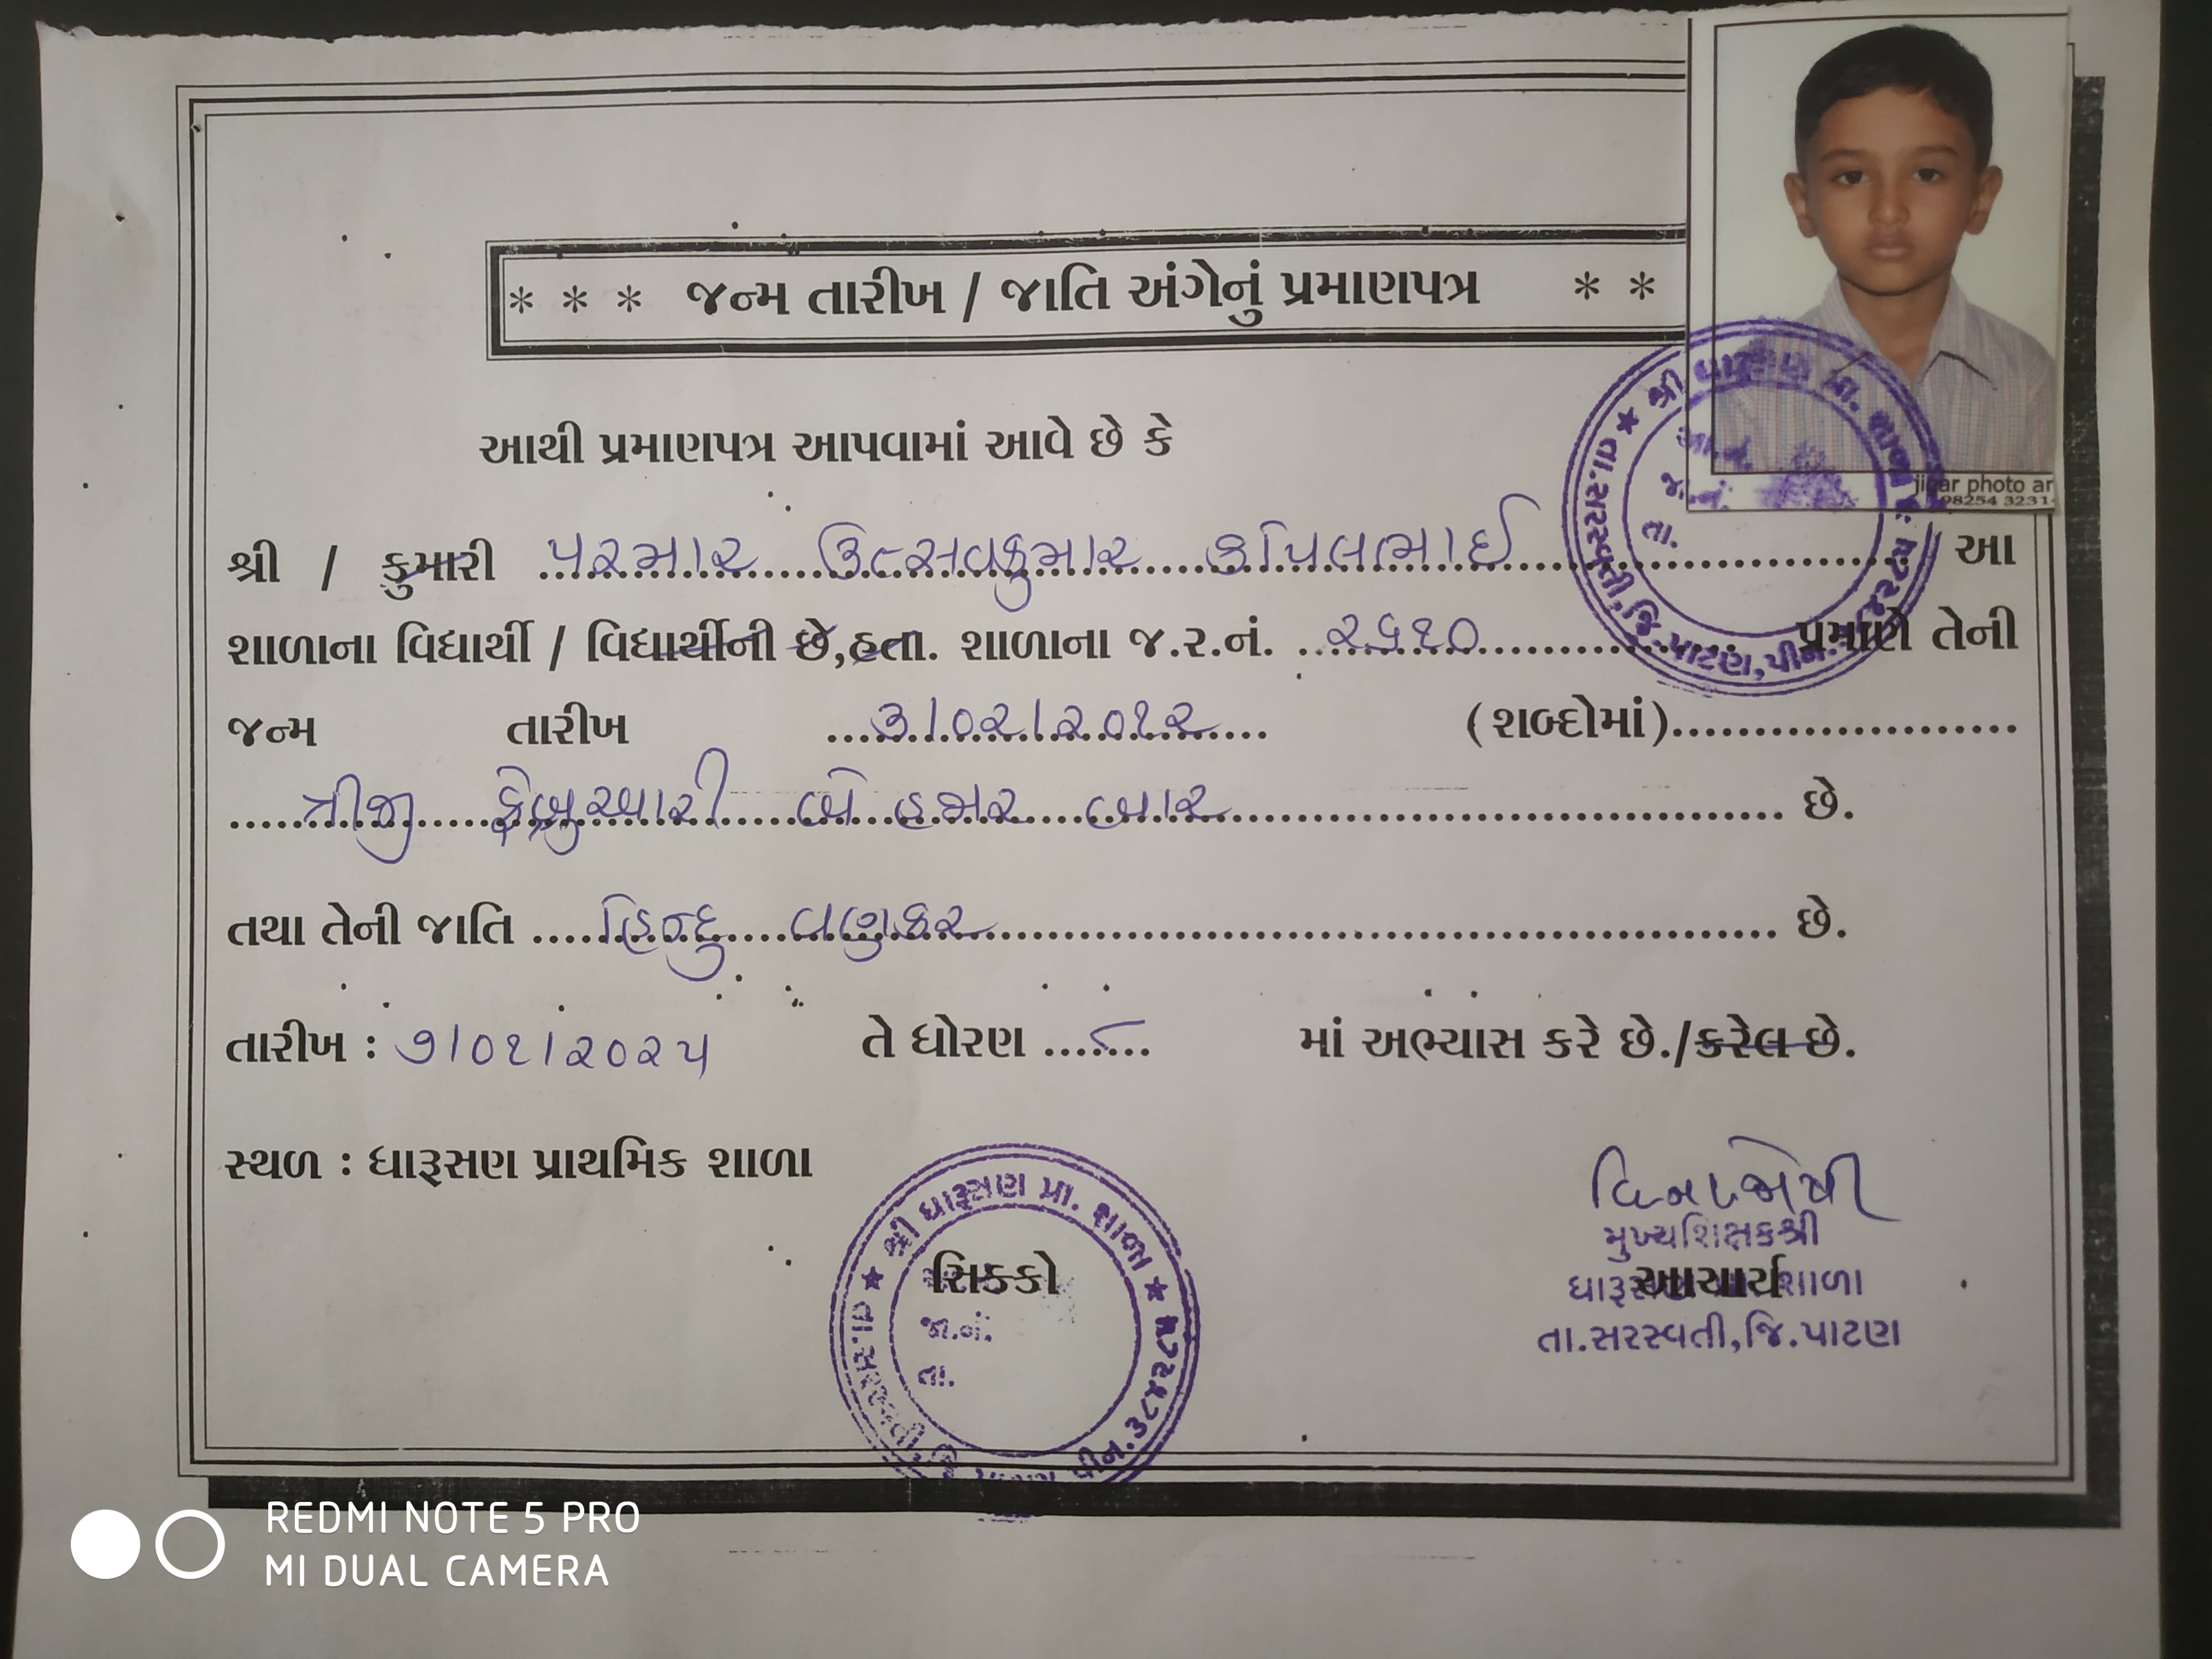 * * * જન્મ તારીખ / જાતિ અંગેનું પ્રમાણપત્ર * *
આથી પ્રમાણપત્ર આપવામાં આવે છે કે
jigar photo ar
98254 3231
શ્રી / કુમારી પરમાર ઉત્સવકુમાર કપિલભાઈ આ
શાળાના વિદ્યાર્થી / વિદ્યાર્થીની છે,હતા. શાળાના જ.ર.નં. ૨૬૧૦ પ્રમાણે તેની
જન્મ તારીખ ૩/૦૨/૨૦૧૨ (શબ્દોમાં)
ત્રીજી ફેબ્રુઆરી બે હજાર બાર છે.
તથા તેની જાતિ હિન્દુ વણકર છે.
તારીખ : ૭/૦૧/૨૦૨૫ તે ધોરણ ૮ માં અભ્યાસ કરે છે./કરેલ છે.
સ્થળ : ધારૂસણ પ્રાથમિક શાળા
શ્રી ધારૂસણ પ્રા. શાળા
તા.સરસ્વતી,જિ.પાટણ,પીન.
જા.નં.
તા.
શ્રી ધારૂસણ પ્રા. શાળા
તા.સરસ્વતી,જિ. પાટણ પીન.૩૮૪૨૮૫
સિક્કો
જા.નં.
તા.
મુખ્યશિક્ષકશ્રી
આચાર્ય
ધારૂસણ શાળા
તા.સરસ્વતી,જિ.પાટણ
REDMI NOTE 5 PRO
MI DUAL CAMERA